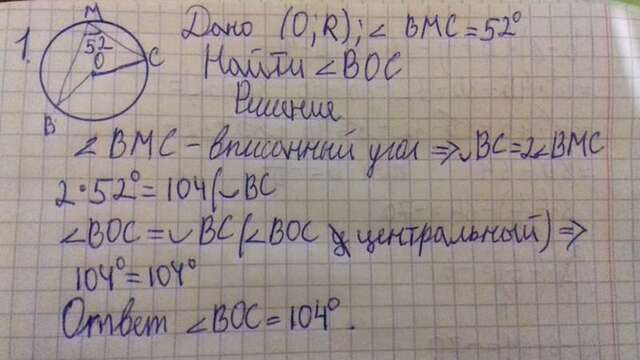 1.
M
52
O
C
B
Дано (O;R); ∠ BMC = 52°
Найти ∠BOC
Решение
∠ BMC - вписанный угол ⇒ ◡BC=2∠BMC
2·52°=104(◡BC
∠BOC = ◡ BC (∠BOC центральный) ⇒
104°=104°
Ответ ∠BOC = 104°.